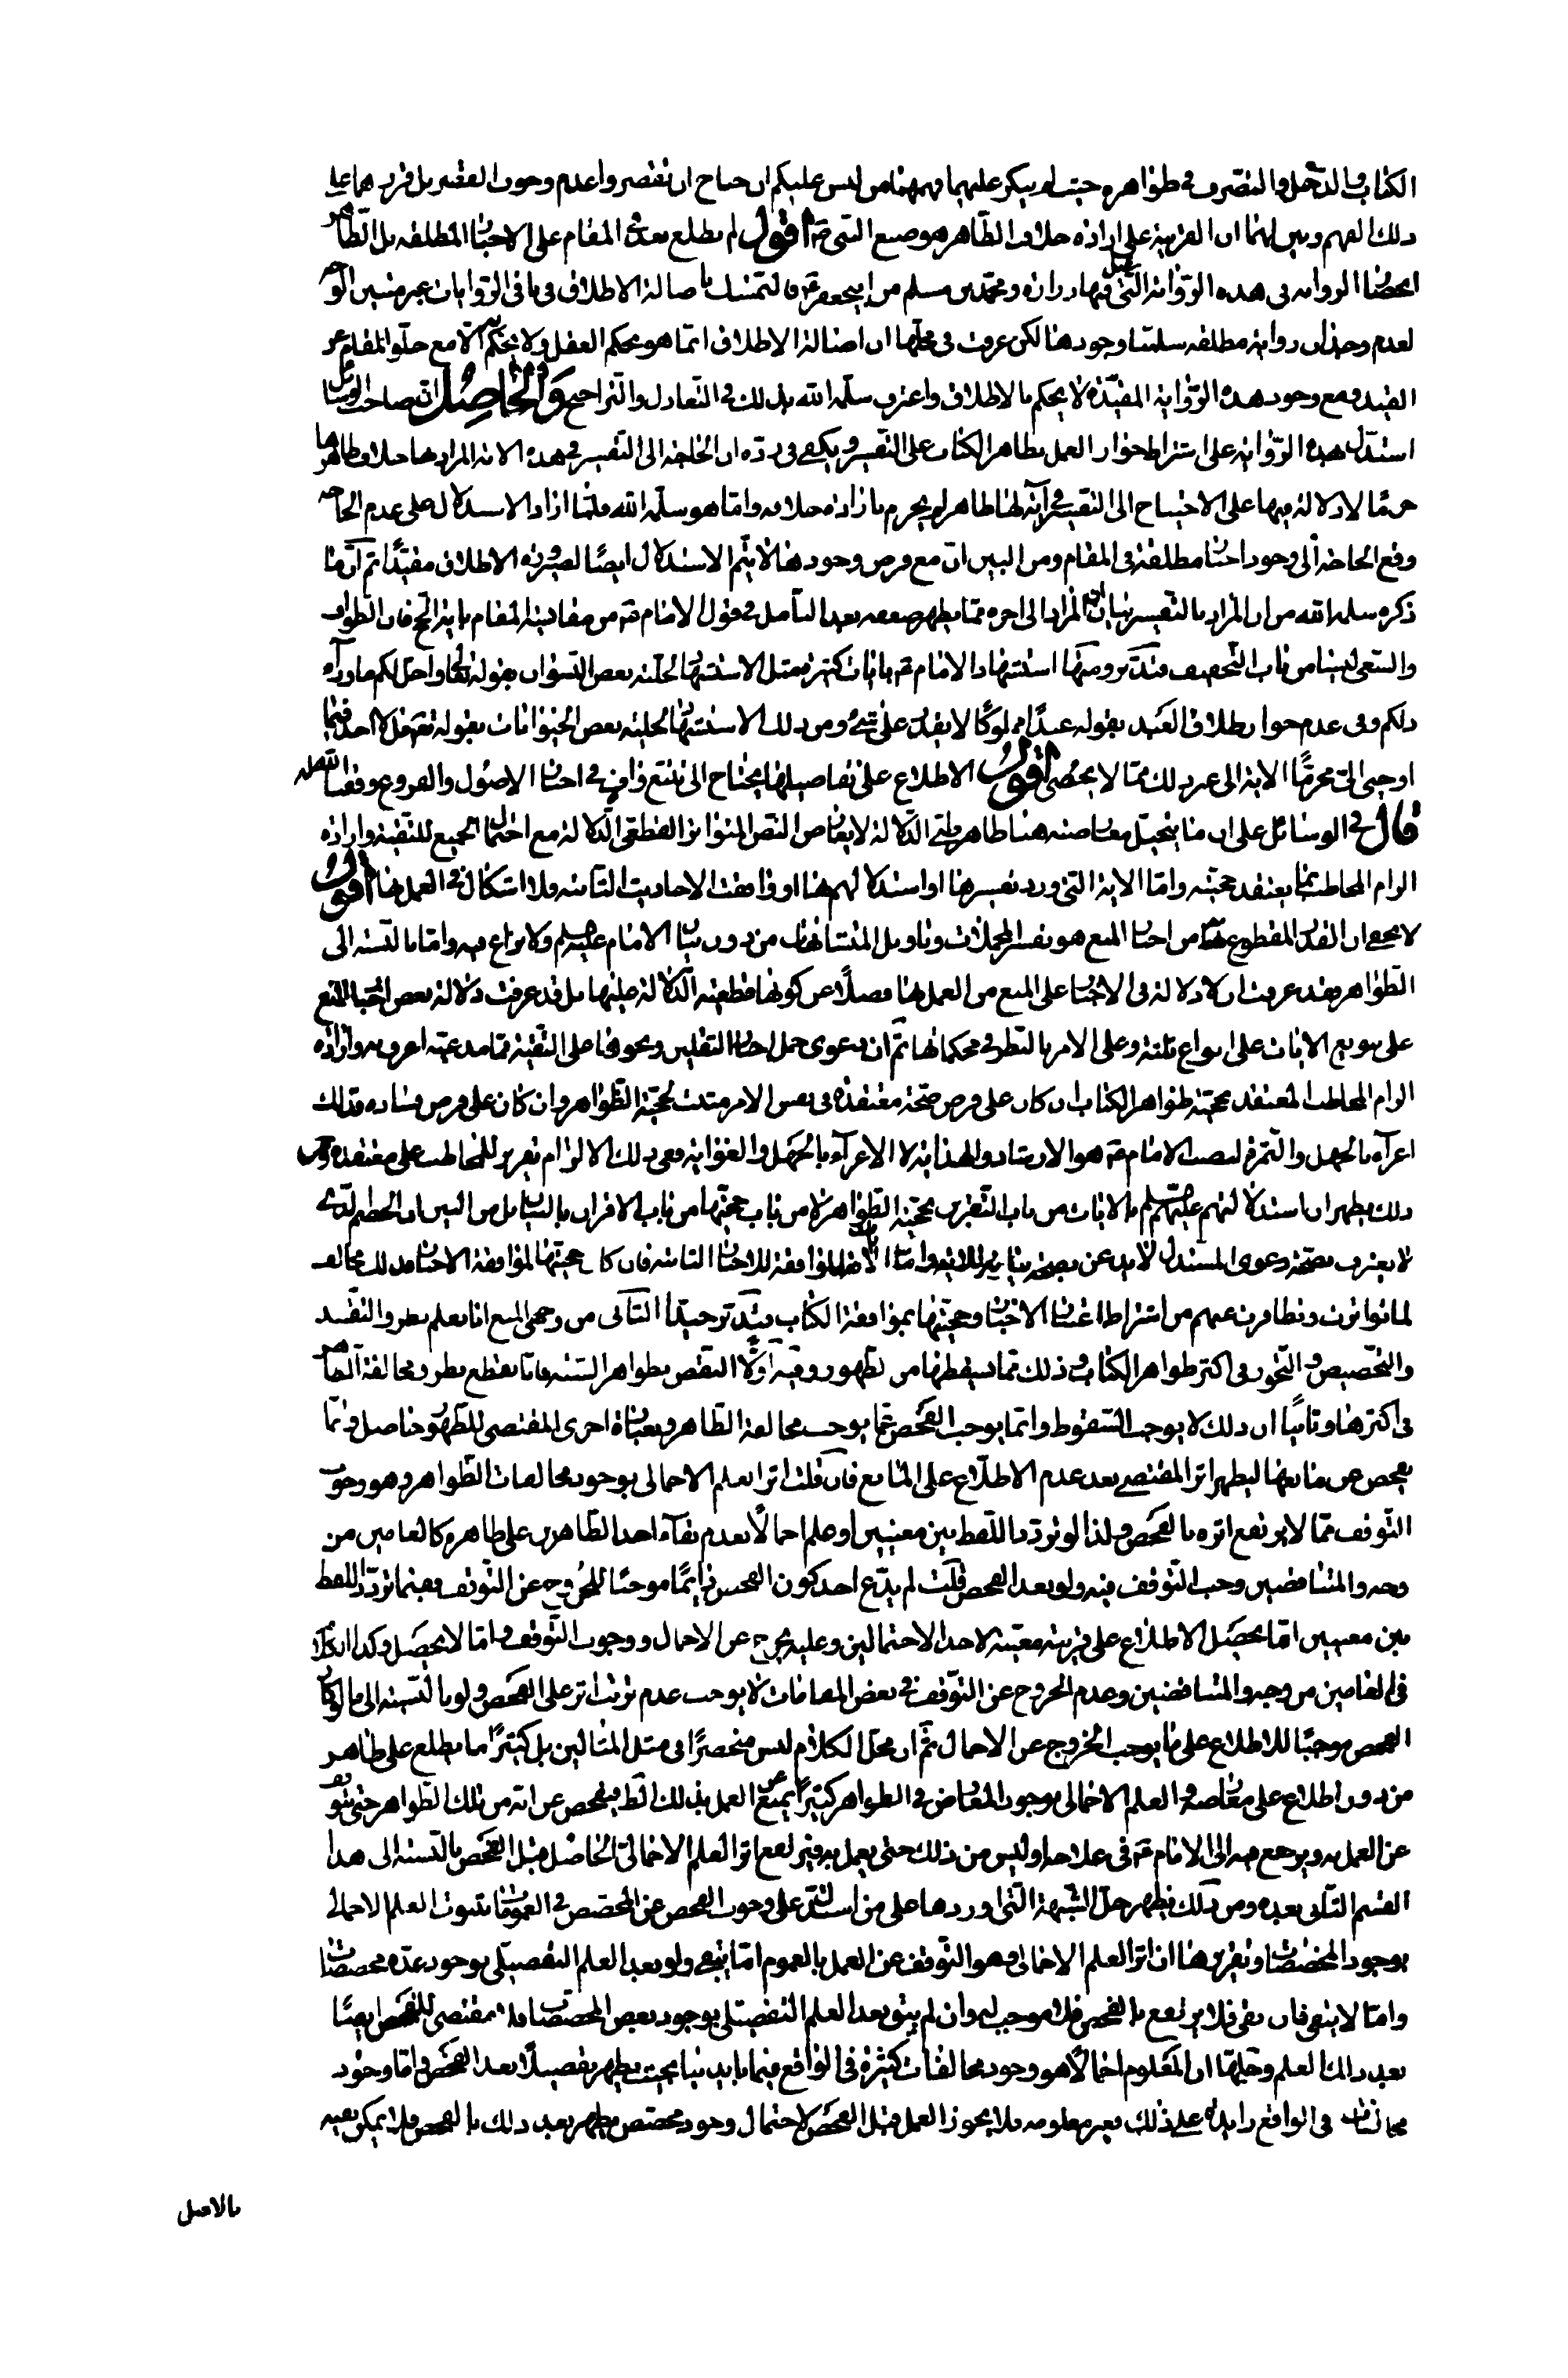 الكتاب والدخل والتصرف في ظواهره حيث لم ينكر عليهما فهمهما من ليس عليكم ان جناح ان تقصروا عدم وجوب القصر بل قررهما على
ذلك الفهم وبين لهما ان القرينة على ارادة خلاف الظاهر هو صنع النبي ص اقول لم نطلع بعد في المقام على الاخبار المطلقة بل الظاهر
الرواية في هذه الرواية التي فيها زرارة ومحمد بن مسلم من ابيجعفر ع فالتمسك باصالة الاطلاق في باقي الروايات غير متبين الوجه
لعدم وجدان رواية مطلقة سلمنا وجودها لكن عرفت في محلها ان اصالة الاطلاق انما هو بحكم العقل ولا يحكم به الا مع خلو المقام عن
القيد ومع وجود هذه الرواية المقيدة لا يحكم بالاطلاق واعترف سلمه الله بذلك في التعادل والتراجيح والحاصل ان صاحب الوسائل
استدل بهذه الرواية على اشتراط جواز العمل بظاهر الكتاب على التفسير ويكفي في رده ان الحاجة الى التفسير في هذه الاية المراد بها خلاف ظاهرها
جزما لا دلالة فيها على الاحتياج الى التفسير في آية لها ظاهر لم يجزم بارادة خلافه واما هو سلمه الله فلما اراد الاستدلال على عدم الحاجة
وقع الحاجة الى وجود اخبار مطلقة في المقام ومن البين ان مع فرض وجودها لا يتم الاستدلال ايضا لصيرورة الاطلاق مقيدا ثم ان ما
ذكره سلمه الله من ان المراد بالتفسير بيان المراد الى اخره مما يظهر ضعفه بعد التأمل في قول الامام ع من مقايسة المقام باية الحج فان الطواف
والسعي ليسا من باب التخفيف فتدبر ومنها استشهاد الامام ع بايات كثيرة مثل الاستشهاد لحلية بعض النسوان بقوله تعالى واحل لكم ما وراء
ذلكم وفي عدم جواز طلاق العبد بقوله عبدا مملوكا لا يقدر على شيء ومن ذلك الاستشهاد لحلية بعض الحيوانات بقوله تع قل لا اجد فيما
اوحي الي محرما الاية الى غير ذلك مما لا يحصى اقول الاطلاع على تفاصيلها يحتاج الى تتبع واف في اخبار الاصول والفروع وفقنا الله له
قال في الوسائل على ان ما يتخيل معارضته هنا ظاهر ظني الدلالة لا يعارض النص المتواتر القطعي الدلالة مع احتمال الجميع للتقية وارادة
الزام المخاطب بما يعتقد حجيته واما الاية التي ورد تفسيرها او استدلالهم بها او وافقت الاحاديث الثابتة فلا اشكال في العمل بها اقول
لا يخفى ان القدر المقطوع من اخبار المنع هو تفسير المجملات وتاويل المتشابهات من دون بيان الامام عليه السلم ولا نزاع فيه واما بالنسبة الى
الظواهر فقد عرفت ان لا دلالة في الاخبار على المنع من العمل بها فضلا عن كونها قطعية الدلالة عليها بل قد عرفت دلالة بعض اخبار المنع
على تنويع الايات على انواع ثلثة وعلى الامر بالنظر في محكماتها ثم ان دعوى حمل اخبار الثقلين ونحوها على التقية مما مدعيه اعرف به وارادة
الزام المخاطب المعتقد بحجية ظواهر الكتاب ان كان على فرض صحة معتقده في نفس الامر مثبت لحجية الظواهر وان كان على فرض فساده فذلك
اغراء بالجهل والثمرة لنصب الامام ع هو الارشاد والهداية لا الاغراء بالجهل والغواية ففي ذلك الالزام تقرير للمخاطب على معتقده ومن
ذلك يظهر ان استدلالهم عليهم السلم بالايات من باب التقرير بحجية الظواهر لا من باب حجيتها من باب الاقران بالبيان بل من البين ان الخصم الذي
لا يعترف بصحة دعوى المستدل لا يذعن بصحة بيانه للاية واما الاية الموافقة للاخبار الثابتة فان كان حجيتها لموافقة الاخبار فذلك مخالف
لما تواترت وتظافرت عنهم من اشتراط اعتبار الاخبار وحجيتها بموافقة الكتاب فتدبر جيدا الثاني من وجهي المنع انا نعلم بطرو التقييد
والتخصيص والتجوز في اكثر ظواهر الكتاب وذلك مما يسقطها من الظهور وفيه اولا النقض بظواهر السنة فانا نقطع بطرو مخالفة الظاهر
في اكثرها وثانيا ان ذلك لا يوجب السقوط وانما يوجب الفحص عما يوجب مخالفة الظاهر وبعبارة اخرى المقتضي للظهور حاصل وانما
يفحص عن مانعها ليظهر اثر المقتضي بعد عدم الاطلاع على المانع فان قلت اثر العلم الاجمالي بوجود مخالفات الظواهر وهو وجوب
التوقف مما لا يرتفع اثره بالفحص ولذا لو تردد اللفظ بين معنيين او علم اجمالا بعدم بقاء احد الظاهرين على ظاهره كالعامين من
وجه والمتناقضين وجب التوقف فيه ولو بعد الفحص قلت لم يدع احد كون الفحص دائما موجبا للخروج عن التوقف ففيما تردد اللفظ
بين معنيين اما يحصل الاطلاع على قرينة معينة لاحد الاحتمالين وعليه يخرج عن الاجمال ووجوب التوقف واما لا يحصل وكذا الكلام
في العامين من وجه والمتناقضين وعدم الخروج عن التوقف في بعض المقامات لا يوجب عدم ترتب اثر على الفحص ولو بالنسبة الى ما لو كان
الفحص موجبا للاطلاع على ما يوجب الخروج عن الاجمال ثم ان محل الكلام ليس منحصرا في مثل المثالين بل كثيرا ما يطلع على ظاهر
من دون اطلاع على معارضه والعلم الاجمالي بوجود المعارض في الظواهر كثيرا يمنع عن العمل بذلك الظ فيفحص عن انه من تلك الظواهر حتى يتوقف
عن العمل به ويرجع فيه الى الامام ع في علاجه او ليس من ذلك حتى يعمل به فيرتفع اثر العلم الاجمالي الحاصل قبل الفحص بالنسبة الى هذا
القسم الثاني بعده ومن ذلك يظهر حل الشبهة التي اوردها على من استدل على وجوب الفحص عن المخصص في العمومات بثبوت العلم الاجمالي
بوجود المخصصات وتقريرها ان اثر العلم الاجمالي وهو التوقف عن العمل بالعموم اما يبقى ولو بعد العلم التفصيلي بوجود عدة مخصصات
واما لا يبقى فان بقي فلا يرتفع بالفحص فلا موجب له وان لم يبق بعد العلم التفصيلي بوجود بعض المخصصات فلا مقتضي للفحص ايضا
بعد ذلك العلم وحلها ان المعلوم اجمالا هو وجود مخالفات كثيرة في الواقع فيما بايدينا بحيث يظهر تفصيلا بعد الفحص واما وجود
مخالفات في الواقع زايدا على ذلك فغير معلومه فلا يجوز العمل قبل الفحص لاحتمال وجود مخصص يظهر بعد ذلك بالفحص فلا يمكن نفيه
بالاصل